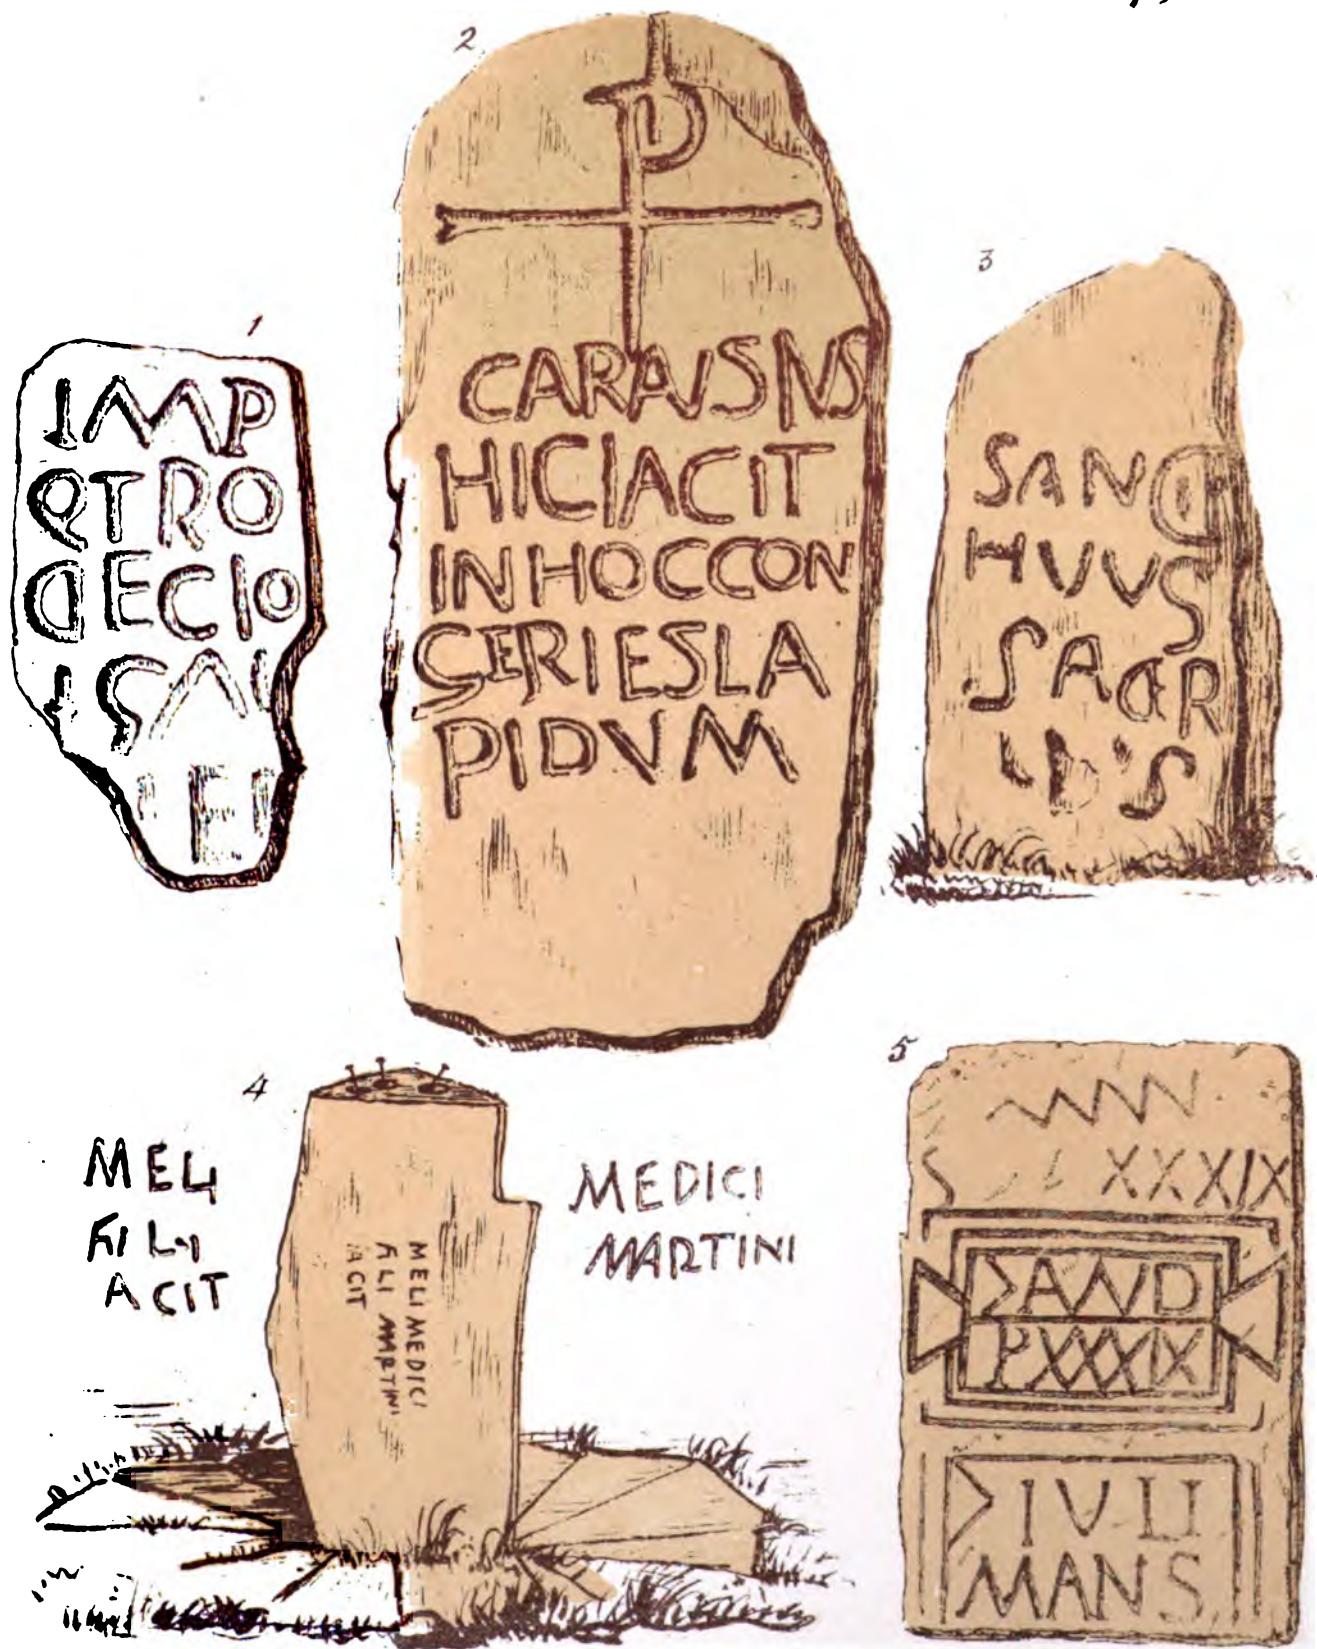 1
IMP
QTRO
DECIO
2
CARAVSIVS
HICIACIT
INHOCCON
GERIESLA
PIDVM
3
SANCT
HVVS
SACER
4
MELI
FILI
ACIT
MELI MEDICI
FILI MARTINI
IACIT
MEDICI
MARTINI
5
XXXIX
>AND
PXXXIX
>IVLI
MANS